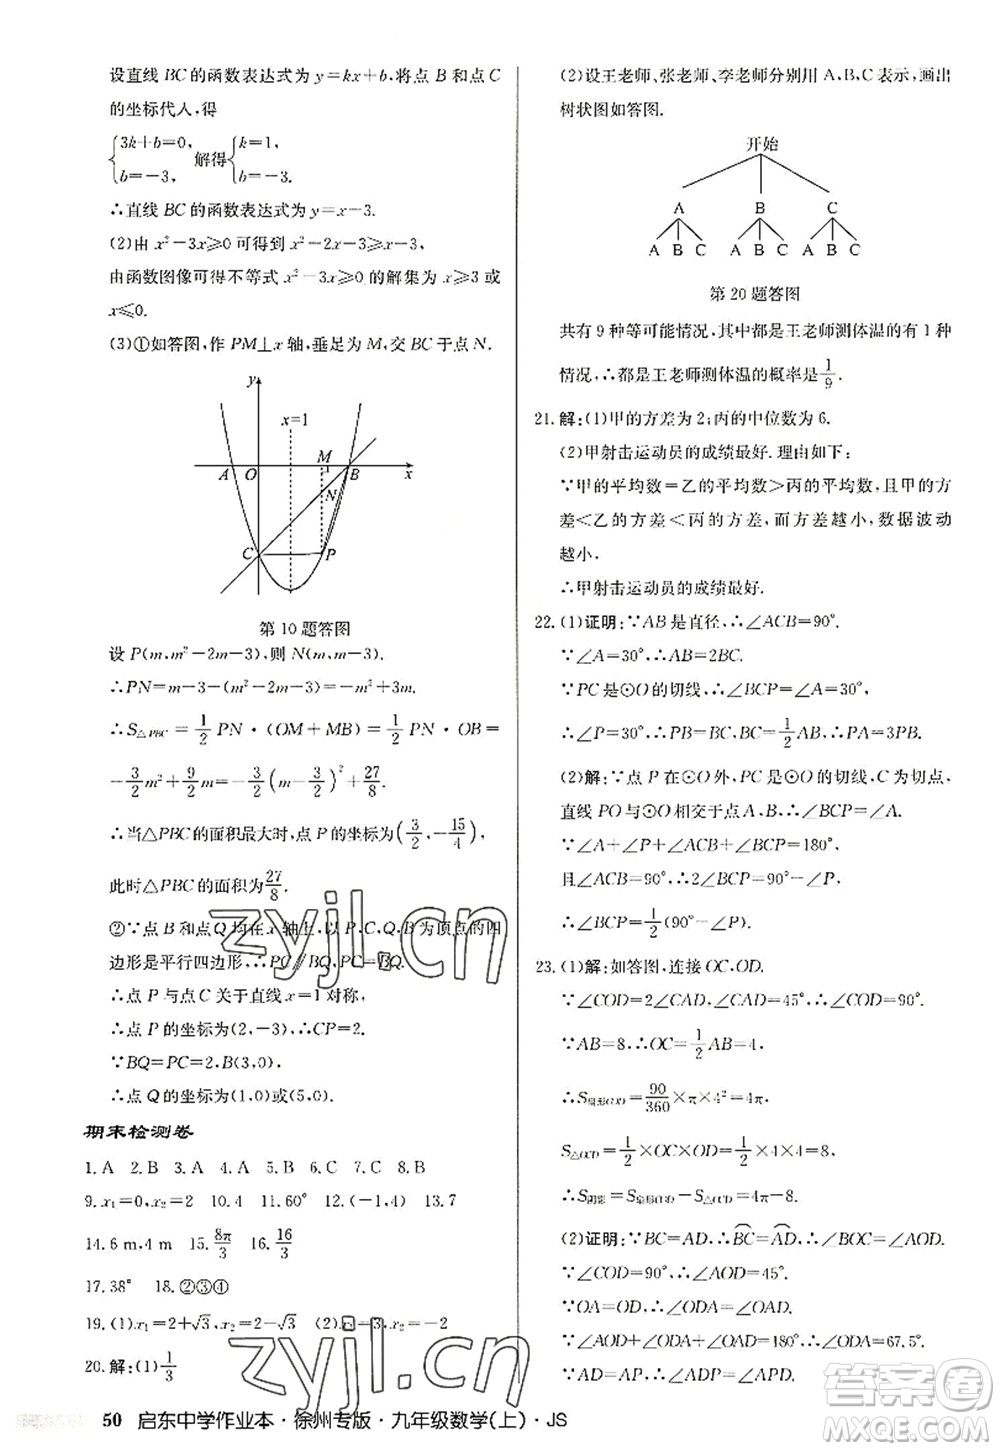 设直线 BC 的函数表达式为 y=kx+b,将点 B 和点 C
的坐标代人,得
{3k+b=0, b=-3, 解得 {k=1, b=-3.
∴直线 BC 的函数表达式为 y=x-3.
(2)由 x²-3x≥0 可得到 x²-2x-3≥x-3,
由函数图像可得不等式 x²-3x≥0 的解集为 x≥3 或
x≤0.
(3)①如答图,作 PM⊥x 轴,垂足为 M,交 BC 于点 N.
y
x=1
A O M B x
N
C P
第 10 题答图
设 P(m,m²-2m-3),则 N(m,m-3).
∴PN=m-3-(m²-2m-3)=-m²+3m.
∴S△PBC = 1/2 PN·(OM+MB)= 1/2 PN·OB=
-3/2 m²+9/2 m=-3/2(m-3/2)²+27/8
∴当△PBC 的面积最大时,点 P 的坐标为(3/2,-15/4),
此时△PBC 的面积为 27/8.
②∵点 B 和点Q 均在 x 轴上,以 P,C,Q,B 为顶点的四
边形是平行四边形,∴PC∥BQ,PC=BQ.
∴点 P 与点 C 关于直线 x=1 对称,
∴点 P 的坐标为(2,-3),∴CP=2.
∵BQ=PC=2,B(3,0),
∴点 Q 的坐标为(1,0)或(5,0).
期末检测卷
1.A 2.B 3.B 4.C 5.A 6.D 7.B 8.D
9.x₁=0,x₂=2 10.4 11.60° 12.(-1,4) 13.7
14.6 m,4 m 15.8π/3 16.16/3
17.38° 18.②③④
19.(1)x₁=2+√3,x₂=2-√3 (2)x₁=3,x₂=-2
20.解:(1)1/3
(2)设王老师、张老师、李老师分别用 A,B,C 表示,画出
树状图如答图.
开始
A B C
A B C A B C A B C
第 20 题答图
共有 9 种等可能情况,其中都是王老师测体温的有 1 种
情况,∴都是王老师测体温的概率是1/9.
21.解:(1)甲的方差为 2;丙的中位数为 6.
(2)甲射击运动员的成绩最好. 理由如下:
∵甲的平均数=乙的平均数>丙的平均数,且甲的方
差<乙的方差<丙的方差,而方差越小,数据波动
越小.
∴甲射击运动员的成绩最好.
22.(1)证明:∵AB 是直径,∴∠ACB=90°.
∵∠A=30°,∴AB=2BC.
∵PC 是⊙O 的切线,∴∠BCP=∠A=30°,
∴∠P=30°,∴PB=BC,BC=1/2 AB,∴PA=3PB.
(2)解:∵点 P 在⊙O 外,PC 是⊙O 的切线,C 为切点,
直线 PO 与⊙O 相交于点 A,B,∴∠BCP=∠A.
∵∠A+∠P+∠ACB+∠BCP=180°,
且∠ACB=90°,∴2∠BCP=90°-∠P,
∴∠BCP=1/2(90°-∠P).
23.(1)解:如答图,连接 OC,OD.
∵∠COD=2∠CAD,∠CAD=45°,∴∠COD=90°.
∵AB=8,∴OC=1/2 AB=4.
∴S扇形COD=90/360×π×4²=4π,
S△OCD=1/2×OC×OD=1/2×4×4=8,
∴S阴影=S扇形COD-S△OCD=4π-8.
(2)证明:∵BC=AD,∴BC=AD,∴∠BOC=∠AOD.
∵∠COD=90°,∴∠AOD=45°.
∵OA=OD,∴∠ODA=∠OAD.
∵∠AOD+∠ODA+∠OAD=180°,∴∠ODA=67.5°.
∵AD=AP,∴∠ADP=∠APD.
50 启东中学作业本·徐州专版·九年级数学(上)·JS
zyjl.cn
zyjl.cn
答案圈
MXQE.COM